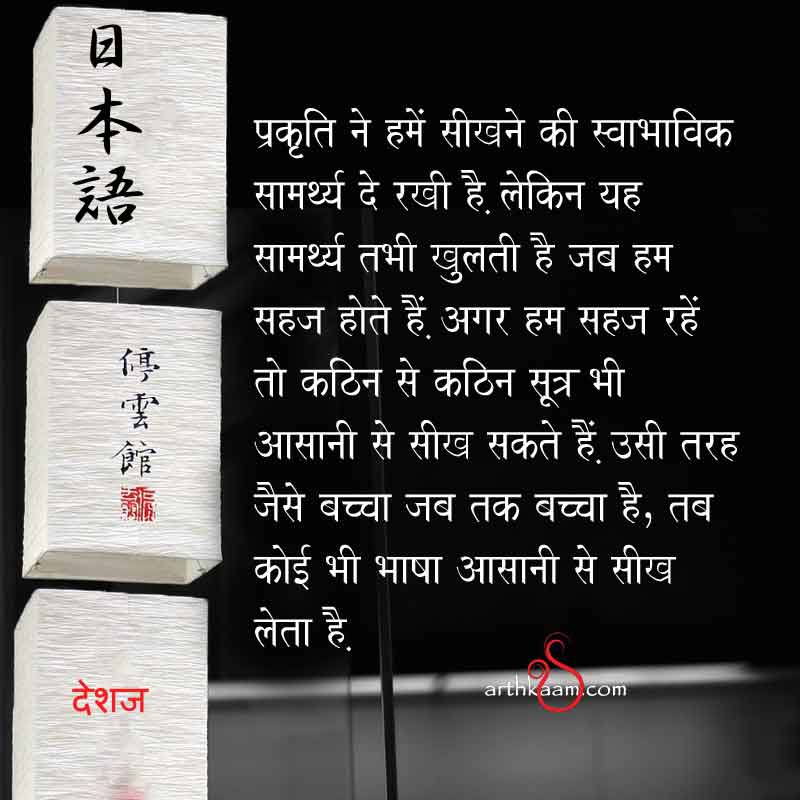 日
本
語
停
雲
館
देशज
प्रकृति ने हमें सीखने की स्वाभाविक
सामर्थ्य दे रखी है. लेकिन यह
सामर्थ्य तभी खुलती है जब हम
सहज होते हैं. अगर हम सहज रहें
तो कठिन से कठिन सूत्र भी
आसानी से सीख सकते हैं. उसी तरह
जैसे बच्चा जब तक बच्चा है, तब
कोई भी भाषा आसानी से सीख
लेता है.
arthkaam.com